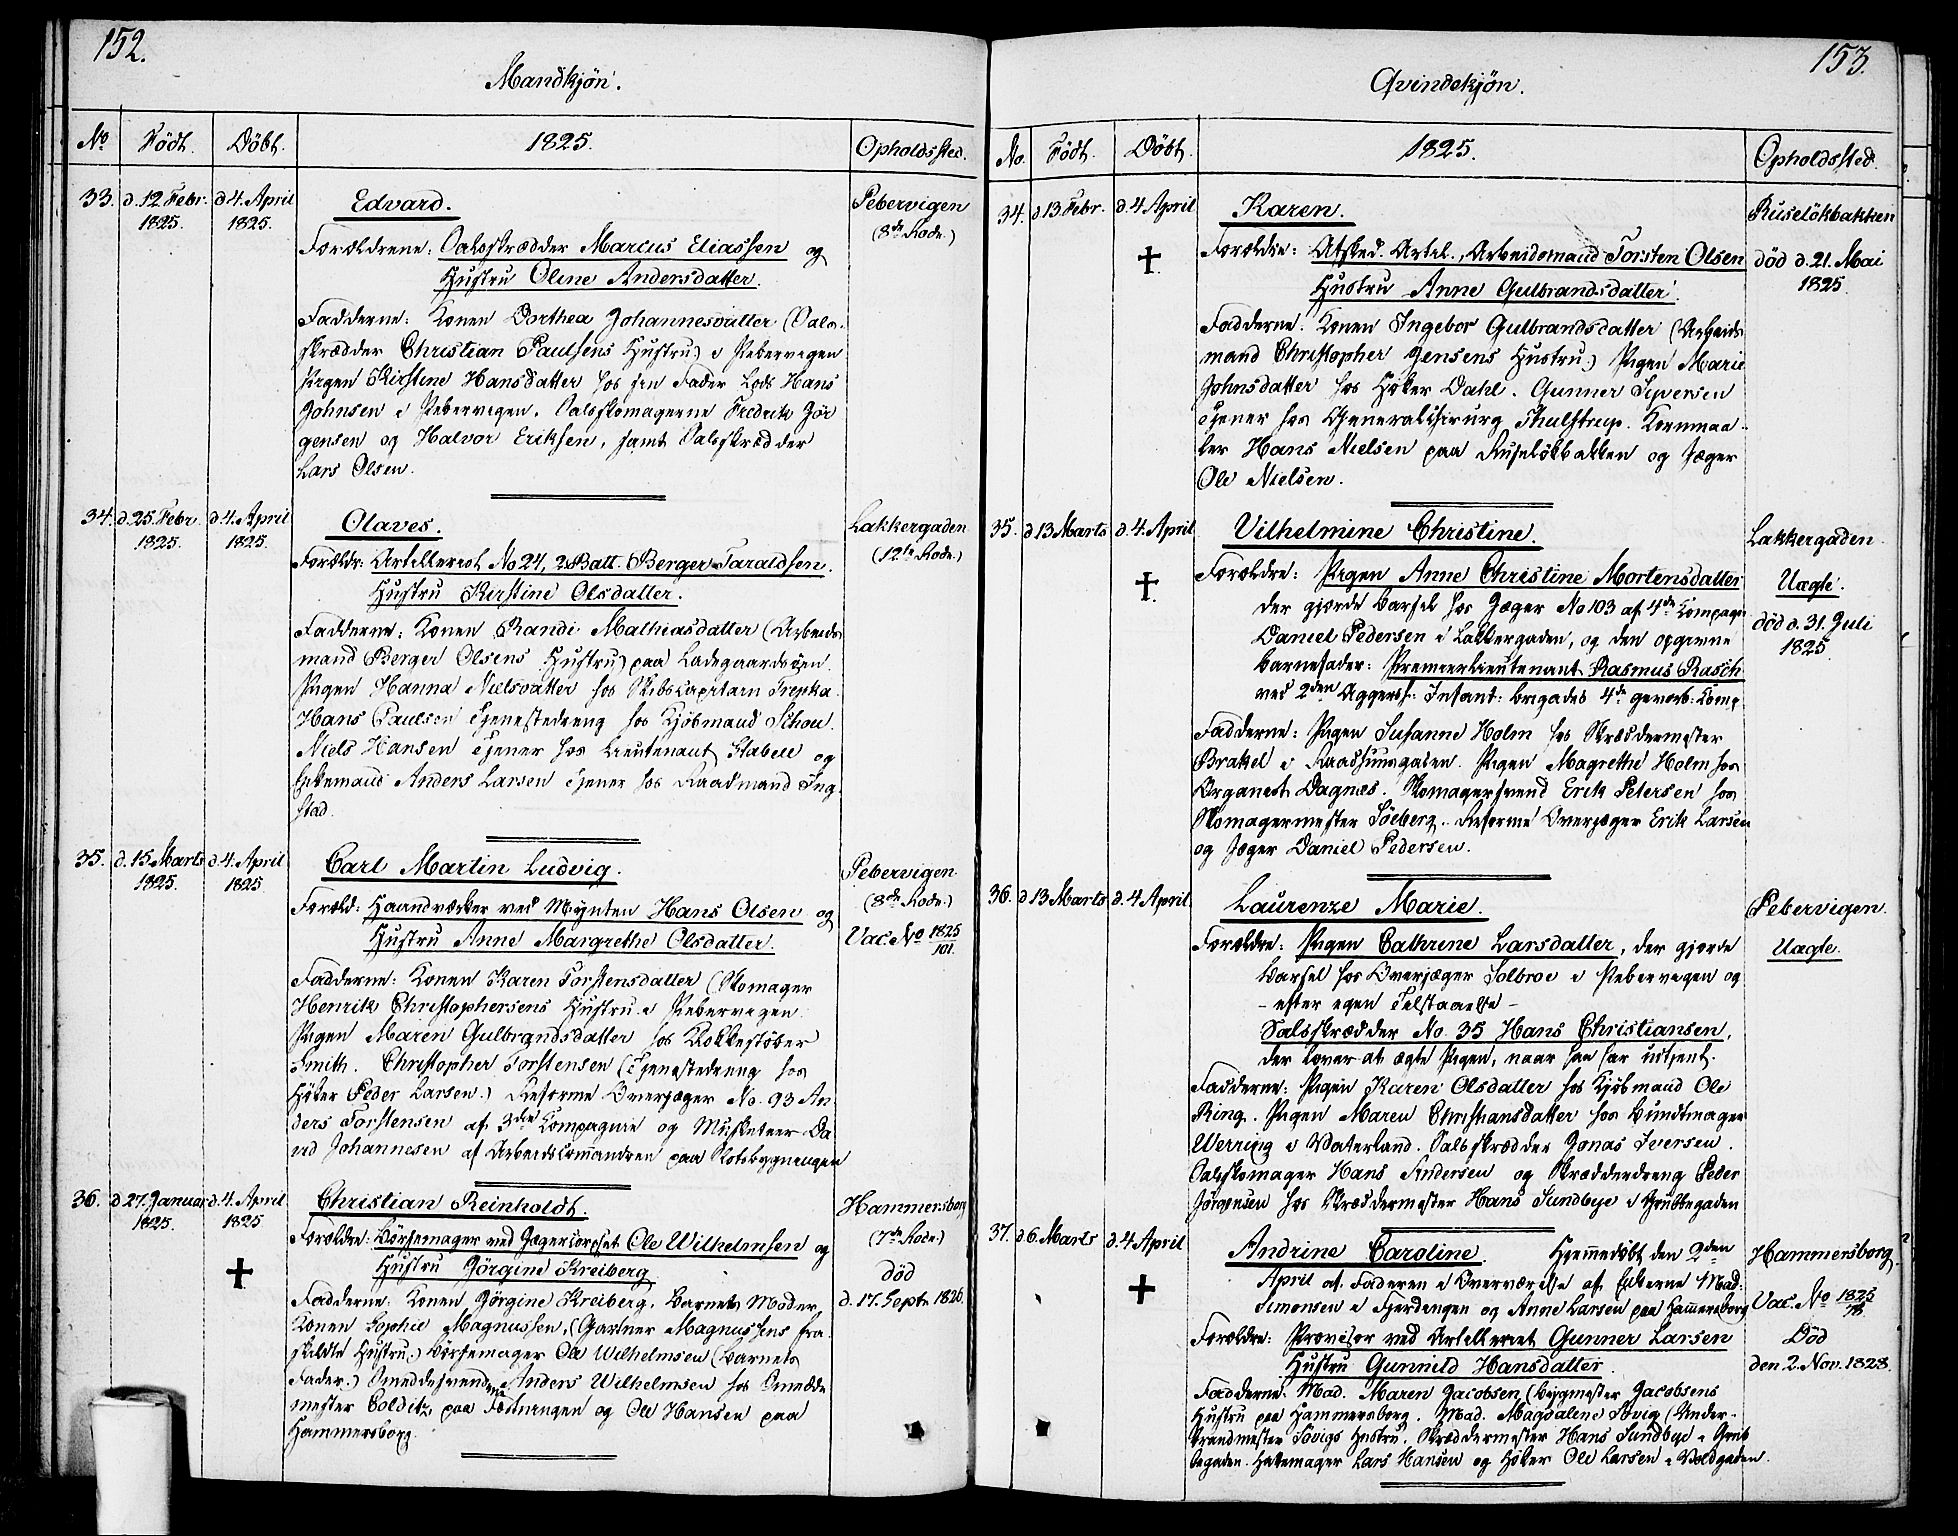 152.
Mandkjøn.
No Født. Döbt. 1825. Opholdssted.
33. d. 12 Febr. 1825. d. 4. April 1825. Edvard. Pebervigen (8de Rode.)
Forældrene: Salsskrædder Marcus Eliassen og
Hustru Oline Andersdatter.
Fadderne: Konen Dorthea Johannesdatter (Sals-
skrædder Christian Paulsens Hustru) i Pebervigen
Pigen Kirstine Hansdatter hos sin Fader Lods Hans
Johnsen i Pebervigen. Salsskomagerne Fredrik Jör
gensen og Halvor Eriksen, samt Salsskrædder
Lars Olsen.
34. d. 25. Febr. 1825. d. 4. April 1825. Olaves. Lakkergaden (12te Rode.)
Forældr: Artillerist No 24, 2 Batt. Berger Taraldsen.
Hustru Kirstine Olsdatter.
Fadderne: Konen Randi Mathiasdatter (Arbeids
mand Berger Olsens Hustru) paa Ladegaardsöen.
Pigen Hanna Nielsdatter hos Skibscapitain Trepka.
Hans Paulsen Tjenestedreng hos Kjöbmand Schou.
Niels Hansen Tjener hos Lieutenant Stabell og
Enkemand Anders Larsen Tjener hos Raadmand Ing
stad.
35. d. 15 Marts 1825. d. 4. April 1825. Carl Martin Ludvig. Pebervigen (8de Rode.)
Vac. No 1825/101.
Foræld: Haandværker ved Mynten Hans Olsen og
Hustru Anne Margrethe Olsdatter.
Fadderne: Konen Karen Torstensdatter (Skomager
Henrik Christophersens Hustru i Pebervigen
Pigen Maren Gulbrandsdatter hos Klokkestöber
Smith. Christopher Torstensen (Tjenestedreng hos
Höker Peder Larsen.) Reforme Overjæger No. 93 An
ders Torstensen af 3die Kompagnie og Musketeer Da
vid Johannesen af Arbeidscommandoen paa Slotsbygningen
36. d. 27. Januar 1825. d. 4. April 1825 Christian Reinholdt. Hammersborg (7de Rode.)
død
d. 17. Septr 1826.
Forældre: Börsemager ved Jægercorpset Ole Wilhelmsen og
Hustru Jörgine Kreiberg
Fadderne: Konen Jörgine Kreiberg. Barnets Moder
Konen Sophie Magnussen, (Gartner Magnussens fra
skildte Hustru.) Börsemager Ole Wilhelmsen (Barnets
Fader.) Smeddesvendene Anders Wilhelmsen hos Smedde
mester Colditz paa Fæstningen og Ole Hansen paa
Hammersborg.
153.
Qvindekjøn.
No. Födt. Döbt. 1825. Opholdssted.
34. d 13. Febr. d. 4 April Karen. Ruselökbakken
død d. 21. Mai 1825.
Forældre: Afsked. Artil., Arbeidsmand Torsten Olsen
Hustru Anne Gulbrandsdatter.
Fadderne: Konen Ingebor Gulbrandsdatter (Arbeids
mand Christopher Jensens Hustru.) Pigen Marie
Johnsdatter hos Höker Dahl. Gunner Siversen
Tjener hos Generalchirurg Thulstrup. Kornmaa-
ler Hans Nielsen paa Ruselökbakken og Jæger
Ole Nielsen.
35. d 13 Marts d. 4. April Vilhelmine Christine. Lakkergaden.
Uægte.
død d. 31. Juli 1825.
Forældre: Pigen Anne Christine Mortensdatter
der gjorde Barsel hos Jæger No 103 af 4de Kompagn
Daniel Pedersen i Lakkergaden, og den opgivne
Barnefader: Premierlieutenant Rasmus Rasch
ved 2den Aggersh: Infant: brigades 4de gevorb: Komp
Fadderne: Pigen Susanne Holm hos Skræddermester
Brakel i Raadhuusgaden. Pigen Magrethe Holm hos
Organist Dagnæs. Skomagersvend Erik Petersen hos
Skomagermester Söeberg. Reforme Overjæger Erik Larsen
og Jæger Daniel Pedersen.
36. d 13 Marts d. 4 April. Laurenze Marie. Pebervigen.
Uægte.
Forældre: Pigen Cathrine Larsdatter, der gjorde
Barsel hos Overjæger Solbroe i Pebervigen og
- efter egen Tilstaaelse -
Salsskrædder No. 35 Hans Christiansen,
der lover at ægte Pigen, naar han har udtjent.
Fadderne: Pigen Karen Olsdatter hos Kjöbmand Ole
Ring. Pigen Maren Christiansdatter hos Bundtmager
Werring i Vaterland. Salsskrædder Jonas Iversen.
Salsskomager Hans Andersen og Skrædderdreng Peder
Jörgensen hos Skræddermester Hans Sundbye i Grubbegaden
37. d 6 Marts d. 4 April Andrine Caroline. Hjemmedöbt den 2den Hammersborg
April af Faderen i Overværelse af Enkerne Mad:
Simonsen i Fjerdingen og Anne Larsen paa Hammersborg
Vac. No 1825/
Død
den 2. Nov. 1828.
Forældre: Provisor ved Artilleriet Gunner Larsen
Hustru Gunnild Hansdatter.
Fadderne: Mad. Maren Jacobsen (Bygmester Jacobsens
Hustru paa Hammersborg. Mad. Magdalene Sövig (Under-
brandmester Sövigs Hustru. Skræddermester Hans Sundbye i Grub
begaden. Hattemager Lars Hansen og Höker Ole Larsen i Voldgaden.